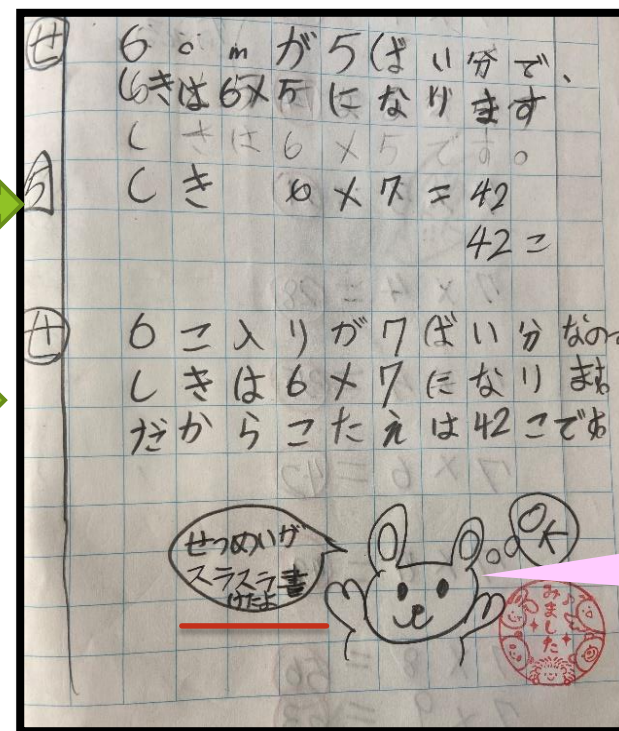 せ 6cmが5ばい分で、
しきは6×5になります
しきは6×5です。
う しき 6×7=42
42こ
せ 6こ入りが7ばい分なので
しきは6×7になります
だからこたえは42こです
せつめいが
スラスラ書
けたよ
OK
みました